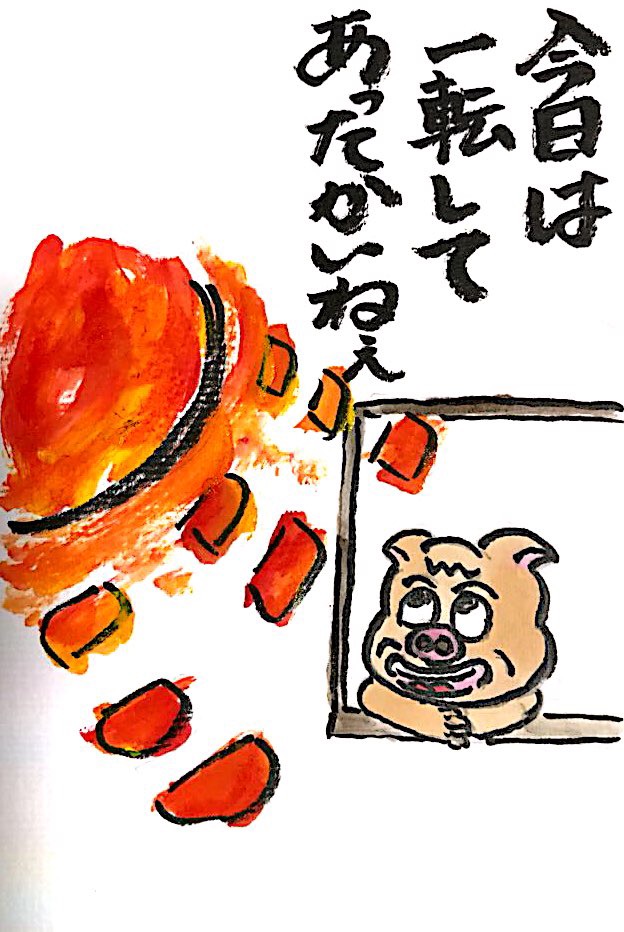 今日は
一転して
あったかいねぇ